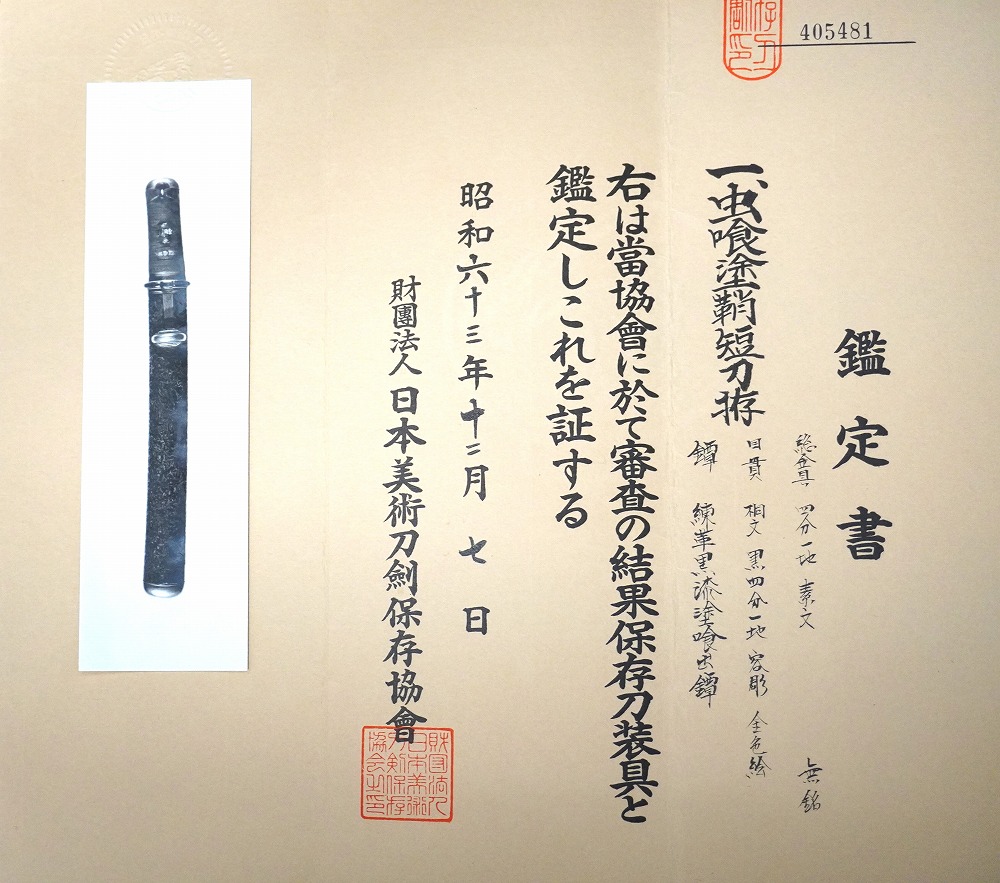 405481
鑑定書
一、虫喰塗鞘短刀拵
総金具 四分一地 素文 無銘
目貫 桐文 黒四分一地 容彫 金色絵
鐔 練革黒漆塗喰出鐔
右は當協會に於て審査の結果保存刀装具と
鑑定しこれを証する
昭和六十三年十二月七日
財團法人日本美術刀劍保存協會
財団法人
日本美術
刀剣保存
協会之印